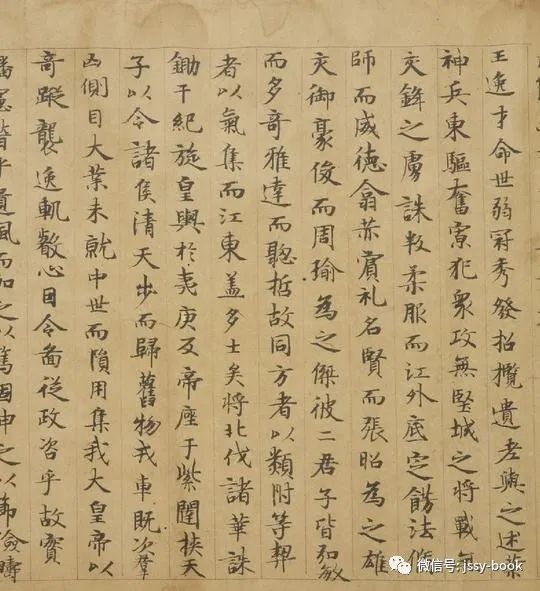 王逸才命世弱冠秀發招攬遺老與之述業
神兵東驅奮寡犯衆攻無堅城之將戰無
交鋒之虜誅叛柔服而江外底定飭法脩
師而威德翕赫賓礼名賢而張昭為之雄
交御豪俊而周瑜為之傑彼二君子皆弘敏
而多奇雅達而聰哲故同方者以類附等契
者以氣集而江東盖多士矣將北伐諸華誅
鋤干紀旋皇輿於夷庚反帝座于紫闥挾天
子以令諸侯清天步而歸舊物戎車既次羣
凶側目大業未就中世而隕用集我大皇帝以
奇蹤襲逸軌叡心因令啚從政咨乎故實
播憲稽乎遺風而加之以篤固申之以節儉疇
微信号: jssy-book